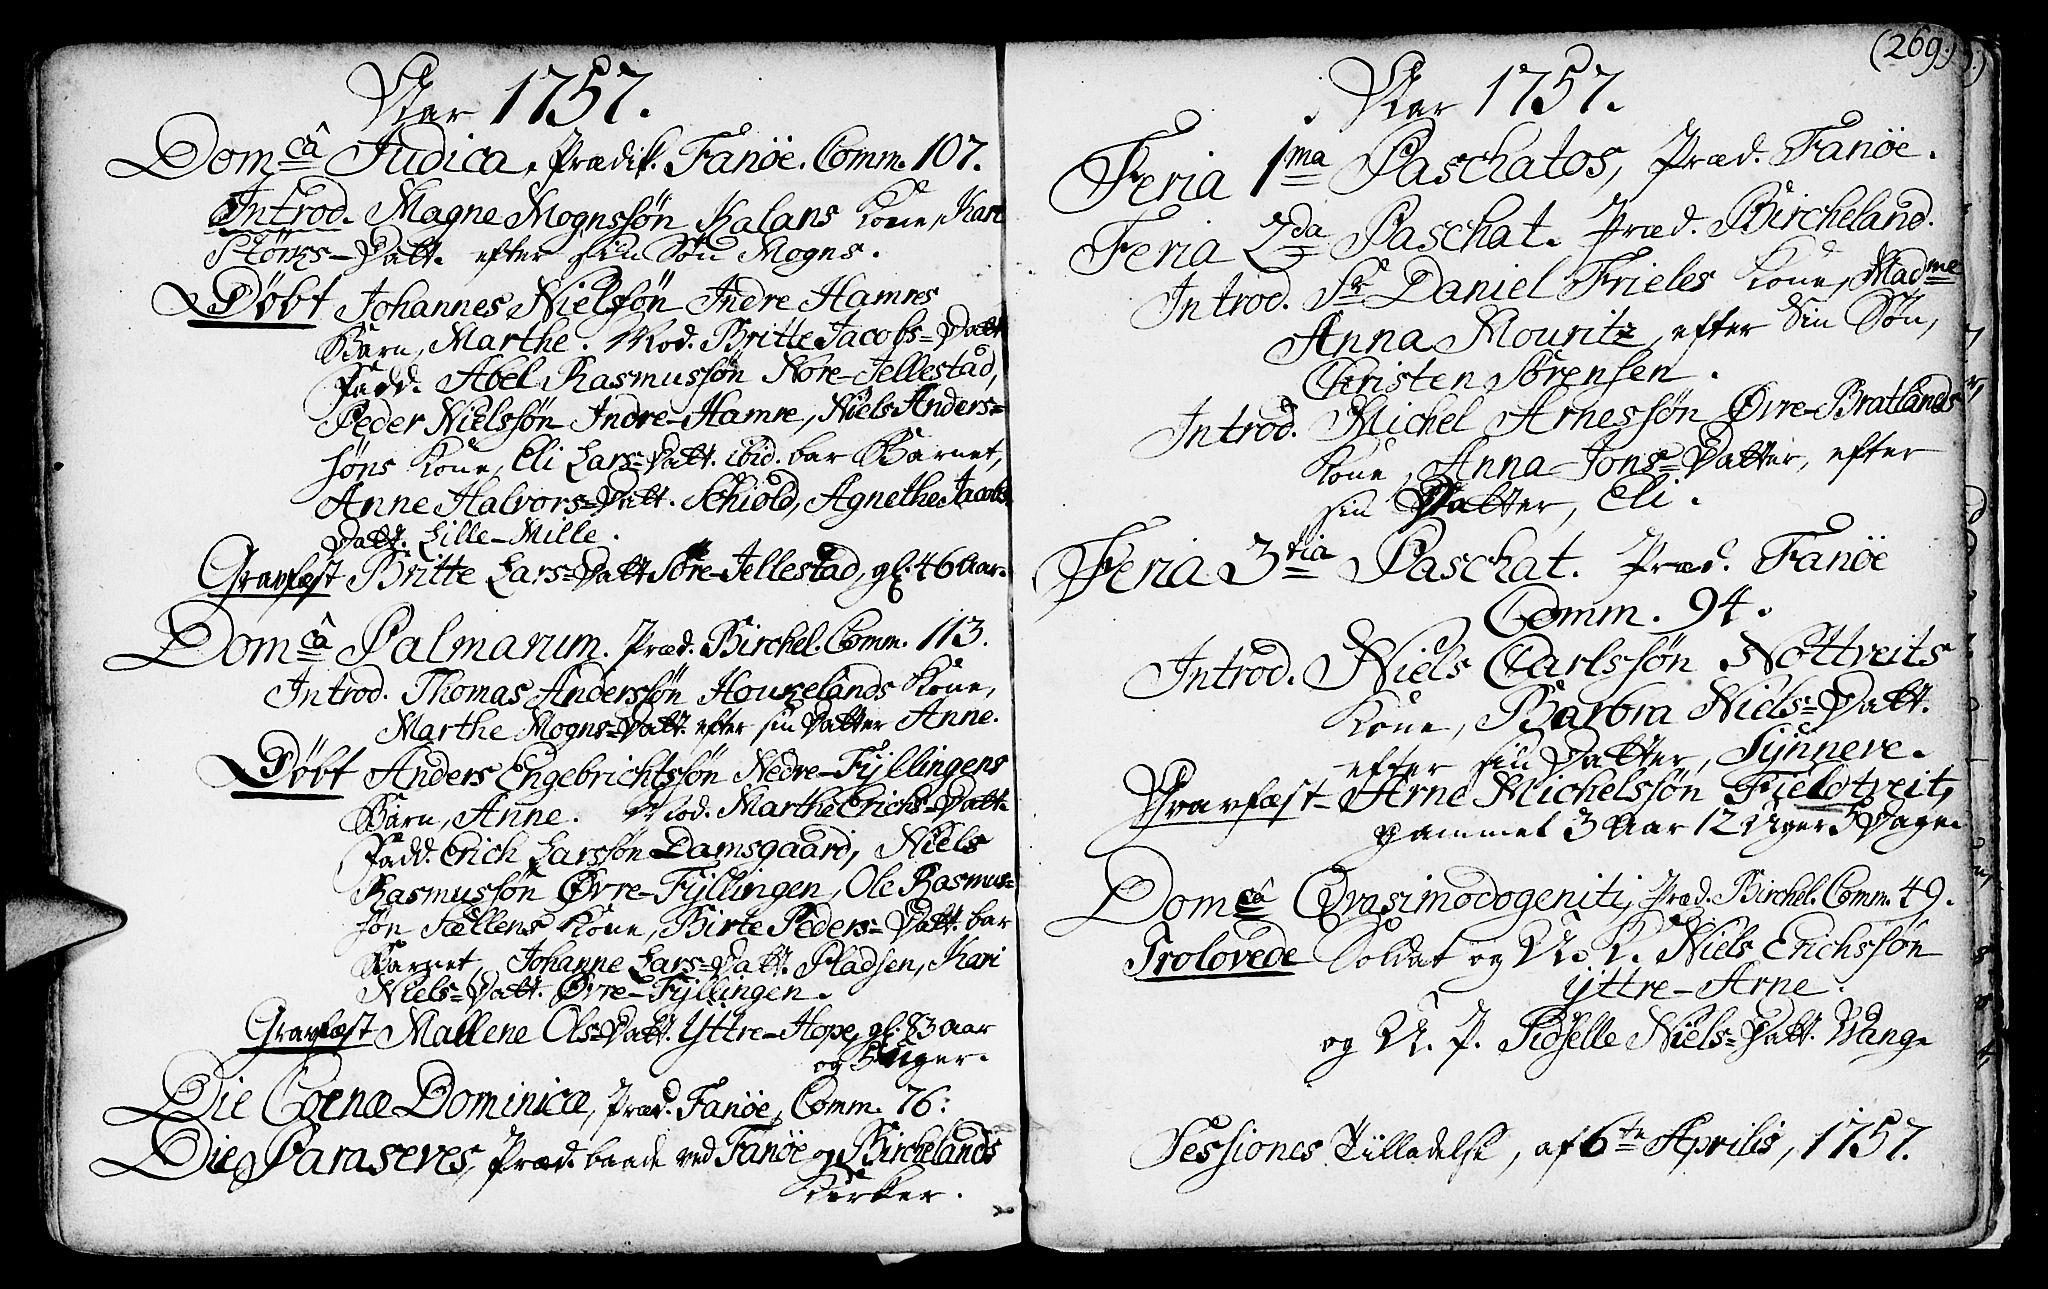 Aar 1757.
Dom.câ Judica, Prædik. Fanöe. Comm. 107.
Introd. Magne Mognssøn Kalans Kone, Kari
Størks-Datt. efter sin Søn Mogns.
Døbt Johannes Nielssøn Indre Hamres
Barn, Marthe. Mod. Britte Jacobs-Datt.
Fadd. Abel Rasmussøn Nore-Jellestad,
Peder Nielssøn Indre-Hamre, Niels Anders-
søns Kone, Eli Lars-Datt. ibid. bar Barnet,
Anne Halvors-Datt. Schiold, Agnethe Jacobs-
Datt. Lille-Milde.
Gravfæst Britte Lars-Datt. Søre-Jellestad, gl. 46 Aar.
Dom.câ Palmarum. Præd. Birchel. Comm. 113.
Introd. Thomas Anderssøn Houkelands Kone,
Marthe Mogns-Datt. efter sin Datter Anne.
Døbt Anders Engebrichtssøn Nedre-Fyllingens
Barn, Anne. Mod. Marthe Erichs-Datt.
Fadd. Erich Larssøn Damsgaard, Niels
Rasmussøn Øvre-Fyllingen, Ole Rasmus-
søn Sællens Kone, Birte Peders-Datt. bar
Barnet, Johanne Lars-Datt. Pladsen, Kari
Niels-Datt. Øvre-Fyllingen.
Gravfæst Mallene Ols-Datt. Yttre-Hope, gl. 83 Aar
og 5 Uger.
Die Coenæ Dominicæ, Præd. Fanöe, Comm. 76.
Die Paraseves, Præd. baade ved Fanöe og Birchelands
Kirker.
(269.)
Aar 1757.
Feria 1ma Paschatos, Præd. Fanöe.
Feria 2da Paschat. Præd. Bircheland.
Introd. Sr. Daniel Frieles Kone, Madme
Anna Mouritz, efter Sin Søn,
Christen Sørensen.
Introd. Michel Arnessøn Øvre-Bratlands
Kone, Anna Jons-Datter, efter
sin Datter, Eli.
Feria 3tia Paschat. Præd. Fanöe
Comm. 94.
Introd. Niels Carlssøn Nottveits
Kone, Barbra Niels-Datt.
efter sin Datter, Synneve.
Gravfæst Arne Michelssøn Fieldtveit,
gammel 3 Aar 12 Uger 5 Dage.
Dom.câ Qvasimodogeniti, Præd. Birchel. Comm. 49.
Trolovede Soldat og U. K. Niels Erichssøn
Yttre-Arne.
og U. P. Siøselle Niels-Datt. Unge
Sessiones Tilladelse, af 6te Aprilis, 1757.